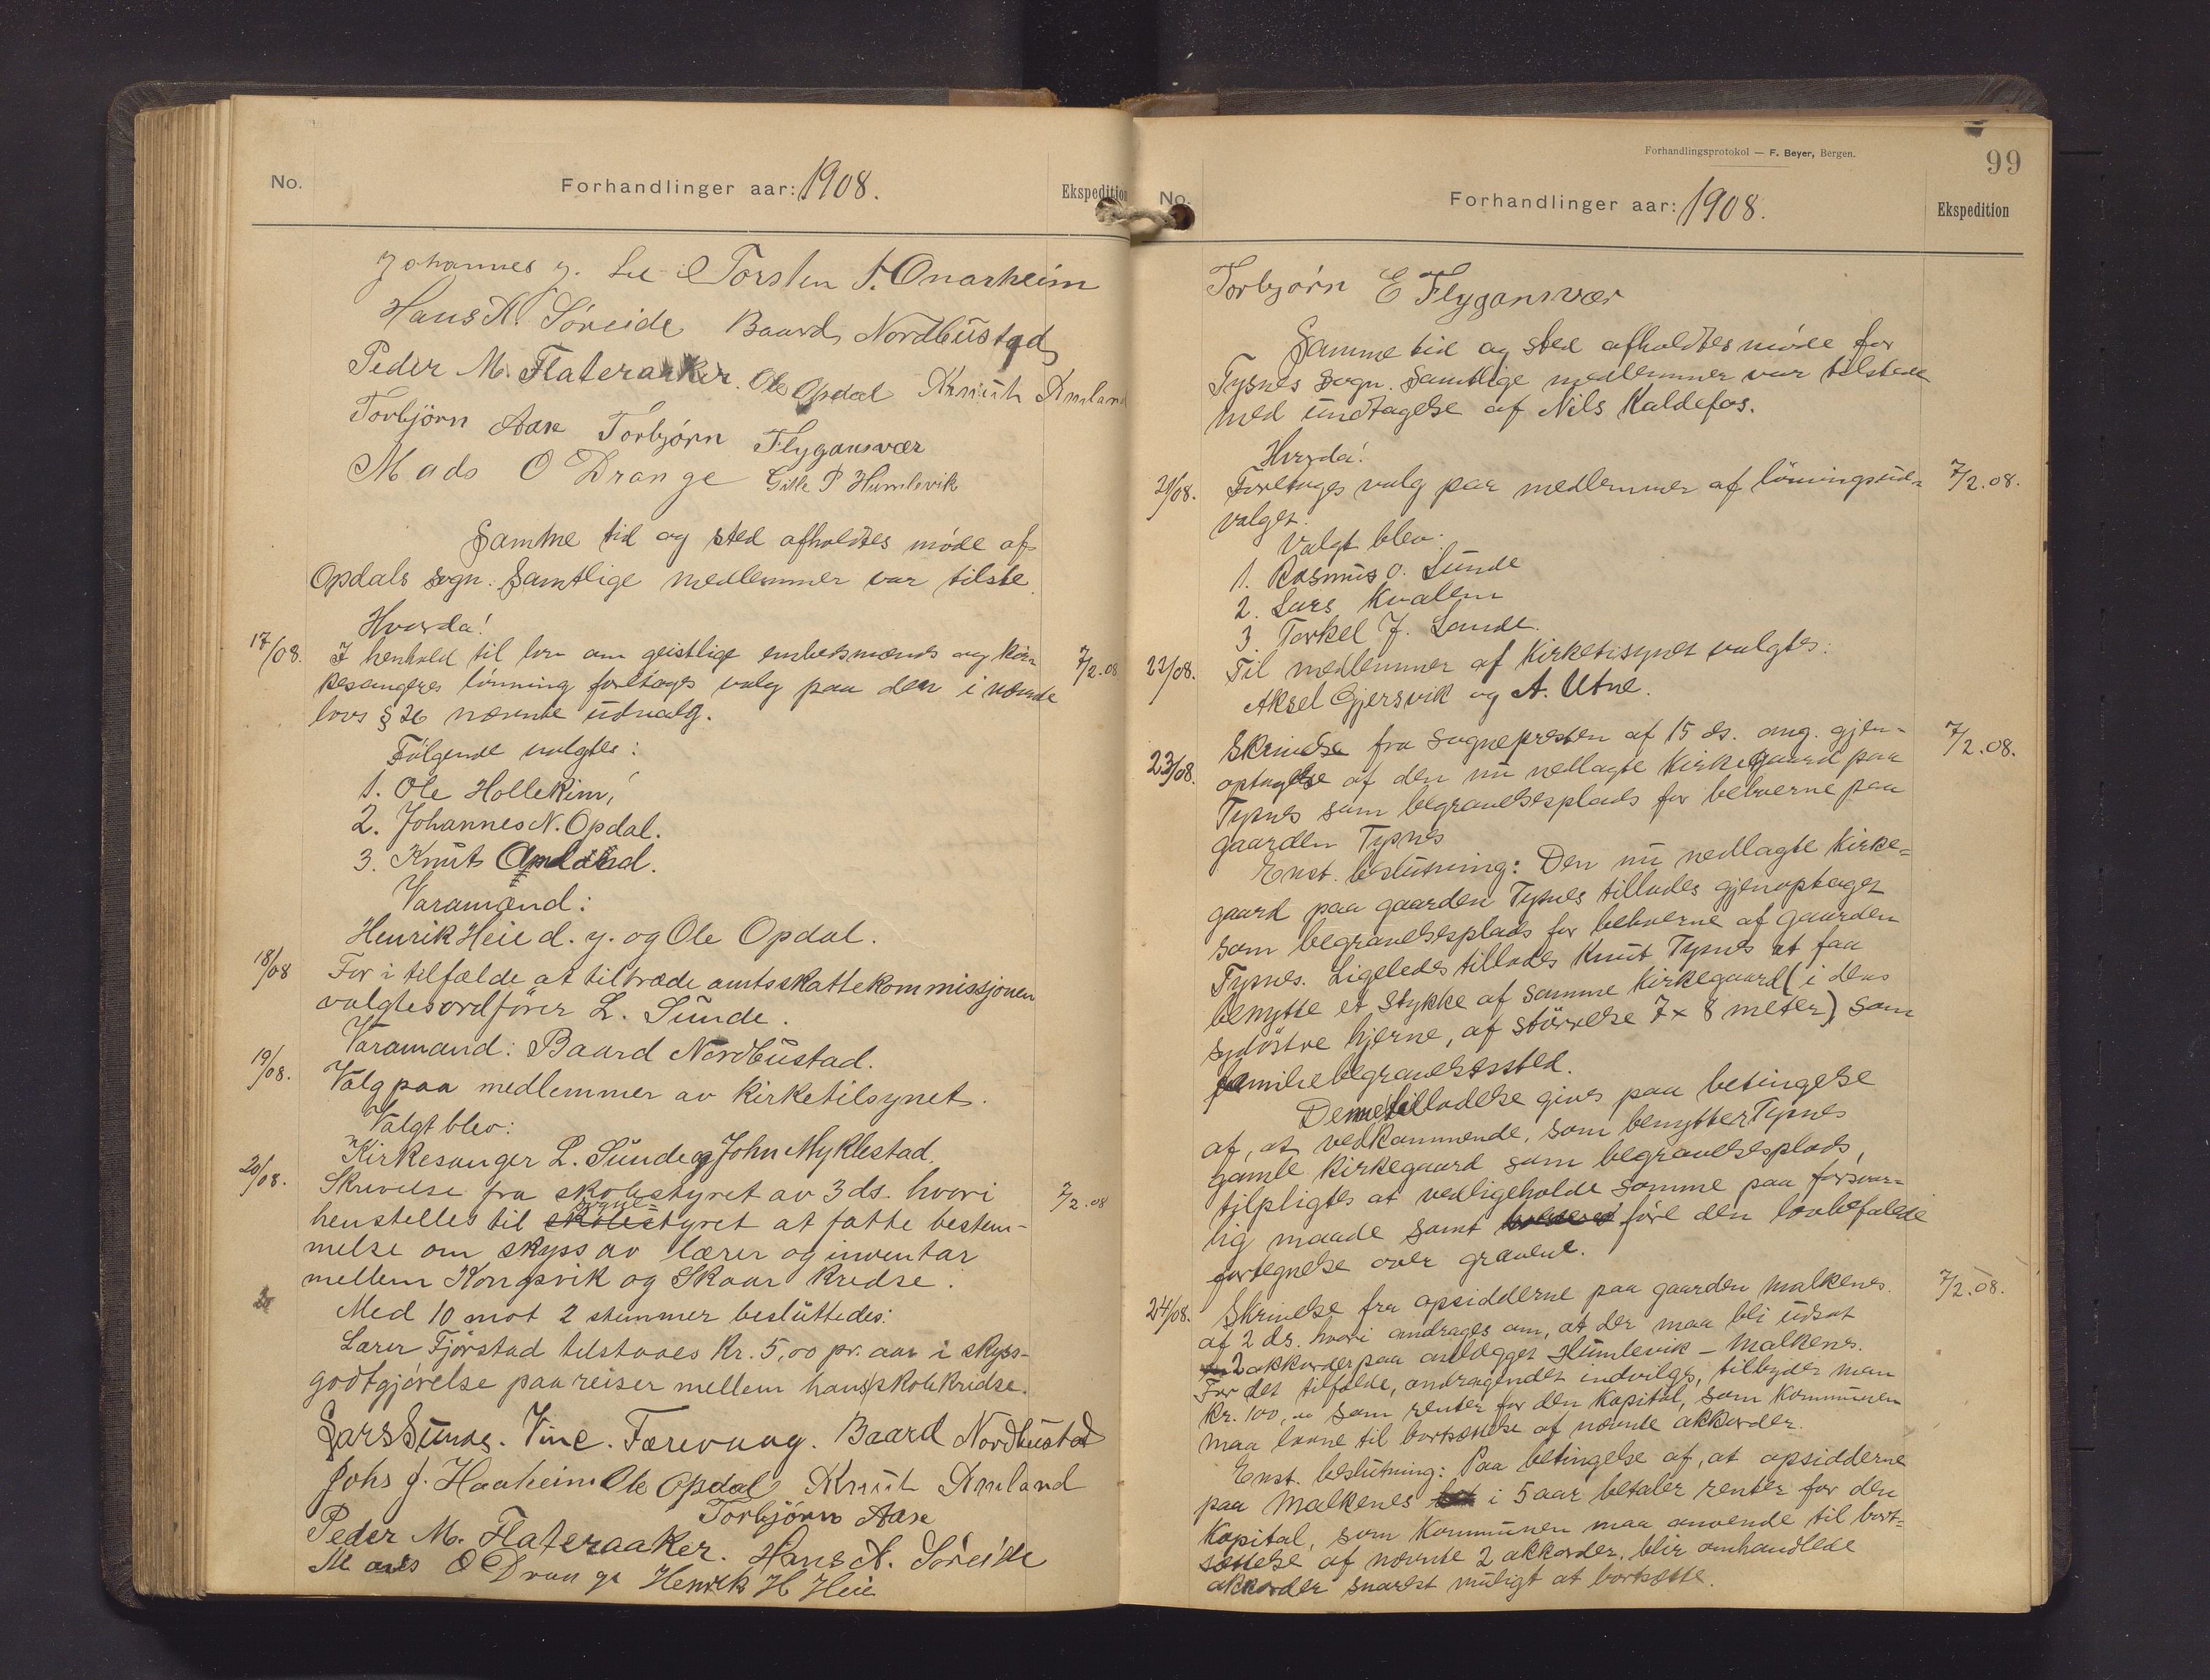 No.
Forhandlinger aar: 1908.
Ekspedition
Johannes J. Lie Torsten T. Onarheim
Hans A. Søreide Baard Nordbustad
Peder M. Flateraaker. Ole Opdal Knut Amland
Torbjörn Aase Torbjørn Flygansvær
Mads O Drange Gitle P Humlevik
Samme tid og sted afholdtes møde af
Opdals sogn. Samtlige medlemmer var tilste.
Hvorda!
17/08. I henhold til lov om geistlige embedsmænds og kir= 7/2.08
kesangeres lønning foretages valg paa det i nævnte
lovs § 26 nævnte udvalg.
Følgende valgtes:
1. Ole Hollekim,
2. Johannes N. Opdal.
3. Knut Amland.
Varamænd:
Henrik Heie d. y. og Ole Opdal.
18/08 For i tilfælde at tiltræde amtsskattekommissjonen
valgtes ordfører L. Sunde.
Varamand: Baard Nordbustad.
19/08. Valg paa medlemmer av kirketilsynet.
Valgt blev:
Kirkesanger L. Sunde og John Myklestad.
20/08. Skrivelse fra skolestyret av 3 ds. hvori 7/2.08
sogne=
henstilles til skolestyret at fatte bestem-
melse om skyss av lærer og inventar
mellem Kongsvik og Skaar kredse.
Med 10 mot 2 stemmer besluttedes:
Lærer Fjørstad tilstaaes Kr. 5,00 pr. aar i skyss-
godtgjørelse paa reiser mellem hans skolekredse.
Lars Sunde. Vinc. Færevaag. Baard Nordbustad
Johs J. Haaheim Ole Opdal Knut Amland
Torbjörn Aase
Peder M. Flateraaker. Hans A. Søreide
Mads O Drange Henrik H Heie
Forhandlingsprotokol — F. Beyer, Bergen.
99
No.
Forhandlinger aar: 1908.
Ekspedition
Torbjørn E Flygansvær
Samme tid og sted afholdtes møde for
Tysnes sogn. Samtlige medlemmer var tilstede
med undtagelse af Nils Kaldefos.
Hvorda!
21/08. Foretoges valg paa medlemmer af lönningsud= 7/2.08.
valget.
Valgt blev:
1. Rasmus O. Sunde
2. Lars Kvalem
3. Torkel J. Lande.
22/08. Til medlemmer af Kirketilsynet valgtes:
Aksel Gjersvik og A. Utne.
23/08. Skrivelse fra sognepresten af 15 ds. ang. gjen- 7/2.08.
optagelse af den nu nedlagte kirkegaard paa
Tysnes som begravelsesplads for beboerne paa
gaarden Tysnes
Enst. beslutning: Den nu nedlagte kirke=
gaard paa gaarden Tysnes tillades gjenoptaget
som begravelsesplads for beboerne af gaarden
Tysnes. Ligeledes tillades Knut Tysnes at faa
benytte et stykke af samme kirkegaard (i dens
sydöstre hjerne, af störrelse 7 x 8 meter) som
familiebegravelsessted.
Denne tilladelse gives paa betingelse
af, at vedkommende, som benytter Tysnes
gamle kirkegaard som begravelsesplads,
tilpligtes at vedligeholde samme paa forsvar=
lig maade samt före den lovbefalede
fortegnelse over gravene.
24/08. Skrivelse fra opsidderne paa gaarden Malkenes 7/2.08.
af 2 ds. hvori andrages om, at der maa bli udsat
2 akkorder paa anlægget Humlevik - Malkenes.
For det tilfælde, andragendet indvilges, tilbyder man
Kr. 100,00 som renter for den Kapital, som Kommunen
maa laane til bortsættelse af nævnte akkorder.
Enst. beslutning: Paa betingelse af, at opsidderne
paa Malkenes i 5 aar betaler renter for den
Kapital, som Kommunen maa anvende til bort=
sættelse af nævnte 2 akkorder, blir omhandlede
akkorder snarest muligt at bortsætte.